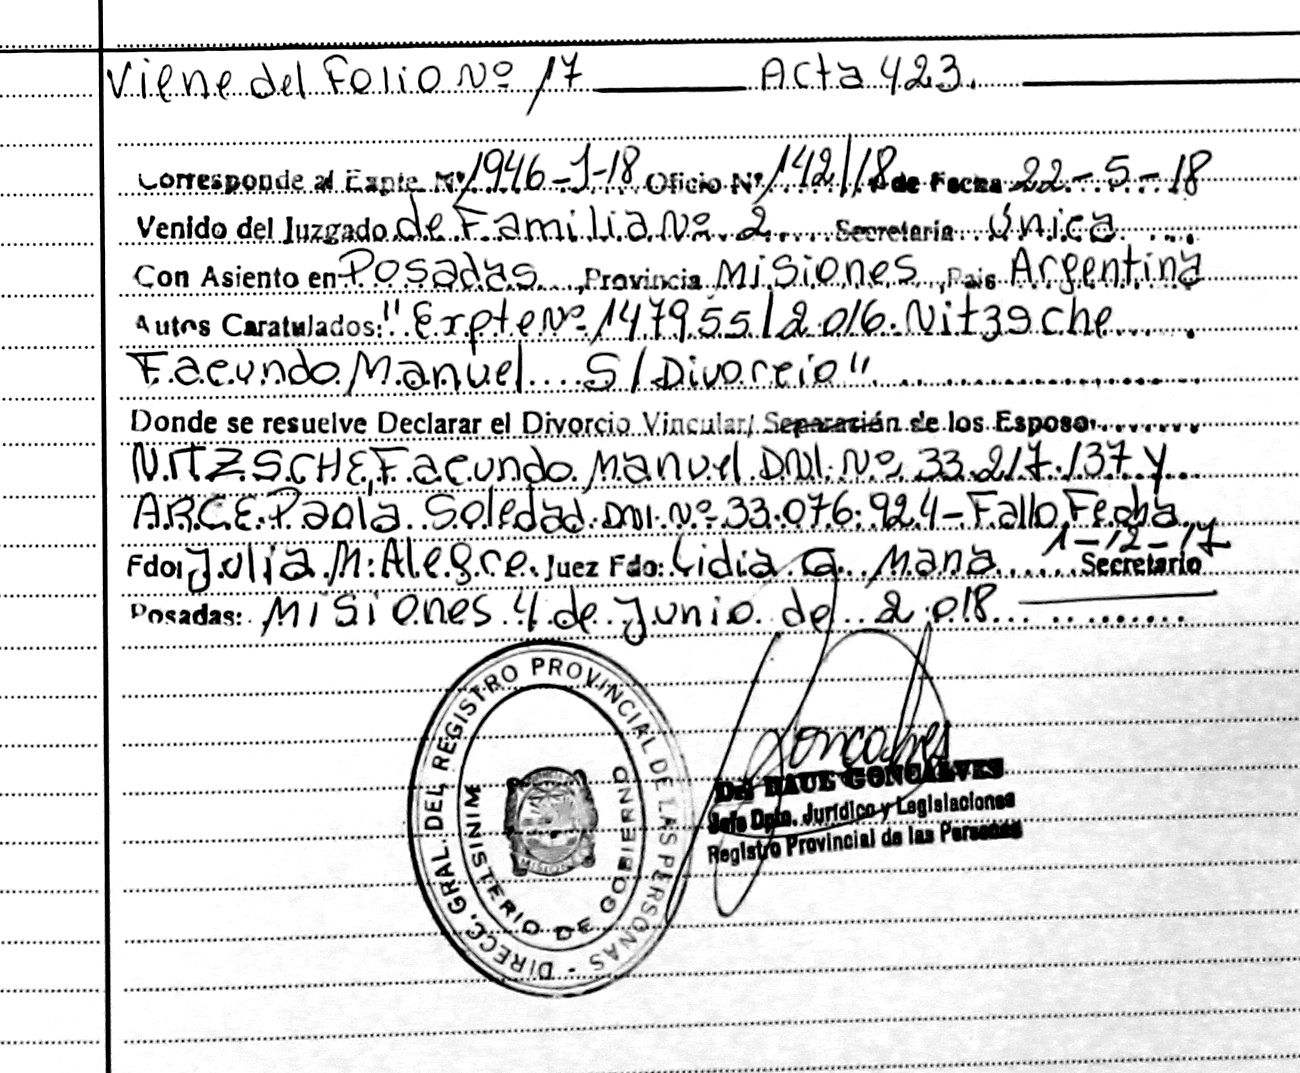 Viene del Folio Nº 17 Acta 423.
Corresponde al Expte. Nº 1946-J-18 Oficio Nº 142/18 de Fecha 22-5-18
Venido del Juzgado de Familia Nº 2 Secretaria Única
Con Asiento en Posadas, Provincia Misiones, País Argentina
Autos Caratulados: "Expte Nº 147955/2016. Nitzsche
Facundo Manuel S/Divorcio"
Donde se resuelve Declarar el Divorcio Vincular/ Separación de los Esposo
NITZSCHE, Facundo Manuel DNI. Nº 33.217.137 y
ARCE Paola Soledad. DNI. Nº 33.076.924 - Fallo Fecha
1-12-17
Fdo: Julia M. Alegre. Juez Fdo: Lidia G. Mana Secretario
Posadas: Misiones 4 de Junio de 2.018
DIRECC. GRAL. DEL REGISTRO PROVINCIAL DE LAS PERSONAS -
MINISTERIO DE GOBIERNO
MISIONES
Goncalves
RAUL GONCALVES
Jefe Dpto. Jurídico y Legislaciones
Registro Provincial de las Personas